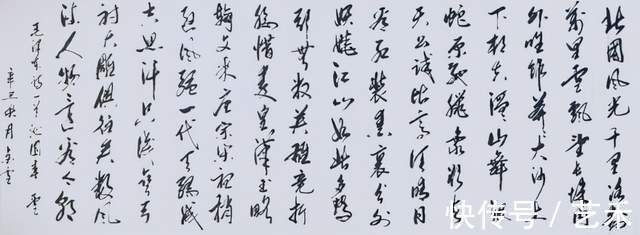 北国风光千里冰封
万里雪飘望长城内
外唯余莽莽大河上
下顿失滔滔山舞银
蛇原驰蜡象欲与
天公试比高须晴日
看红装素裹分外
妖娆江山如此多娇
引无数英雄竞折
腰惜秦皇汉武略
输文采唐宗宋祖稍
逊风骚一代天骄成
吉思汗只识弯弓
射大雕俱往矣数风
流人物还看今朝
毛泽东词一首沁园春雪
辛丑秋月
快传号/艺禾